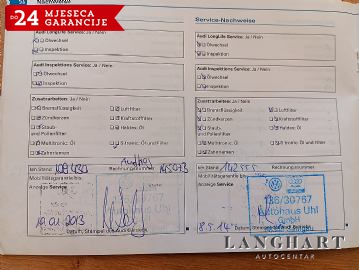 DO 24 MJESECA
GARANCIJE
Nachweise
Service-Nachweise
Audi LongLife Service: Ja / Nein
Ölwechsel
Inspektion
Audi Inspektions Service: Ja / Nein
Ölwechsel
Inspektion
Zusatzarbeiten: Ja / Nein
Bremsflüssigkeit
Luftfilter
Zündkerzen
Kraftstofffilter
Staub-
und Pollenfilter
Haldex: Öl
Multitronic: Öl
S tronic: Öl und Filter
Zahnriemen
km Stand
Rechnungsnummer
Mobilitätsgarantie bis
Anzeige Service
19.02.2013
Datum, Stempel des Audi Betriebs
Audi LongLife Service: Ja / Nein
Ölwechsel
Inspektion
Audi Inspektions Service: Ja / Nein
Ölwechsel
Inspektion
Zusatzarbeiten: Ja / Nein
Bremsflüssigkeit
Luftfilter
Zündkerzen
Kraftstofffilter
Staub-
und Pollenfilter
Haldex: Öl
Multitronic: Öl
S tronic: Öl und Filter
Zahnriemen
km Stand
Rechnungsnummer
Mobilitätsgarantie bis
Anzeige Service
186/30767
Autohaus Uhl
GmbH
8.5.14
LANGHART
AUTOCENTAR